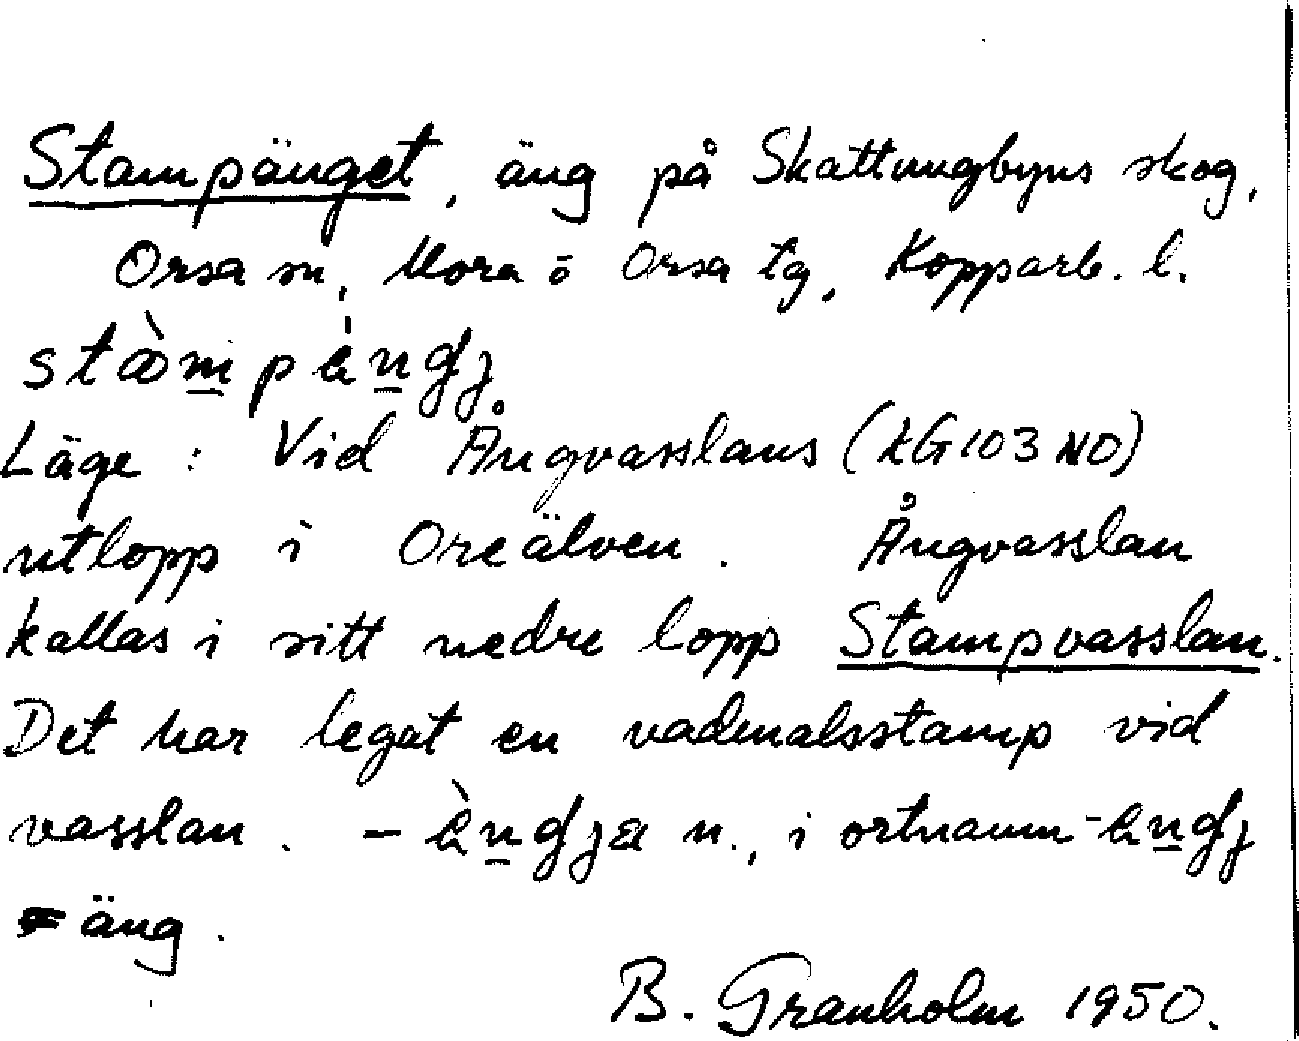 Stampänget, äng på Skattungbyns skog,
Orsa sn, Mora ö Orsa tg, Kopparb. l.
Läge: Vid Ångvasslans (kG103NO)
utlopp i Oreälven. Ångvasslan
kallas i sitt nedre lopp Stampvasslan.
Det har legat en vadmalsstamp vid
vasslan. - n., i ortnamn
= äng.
B. Granholm 1950.